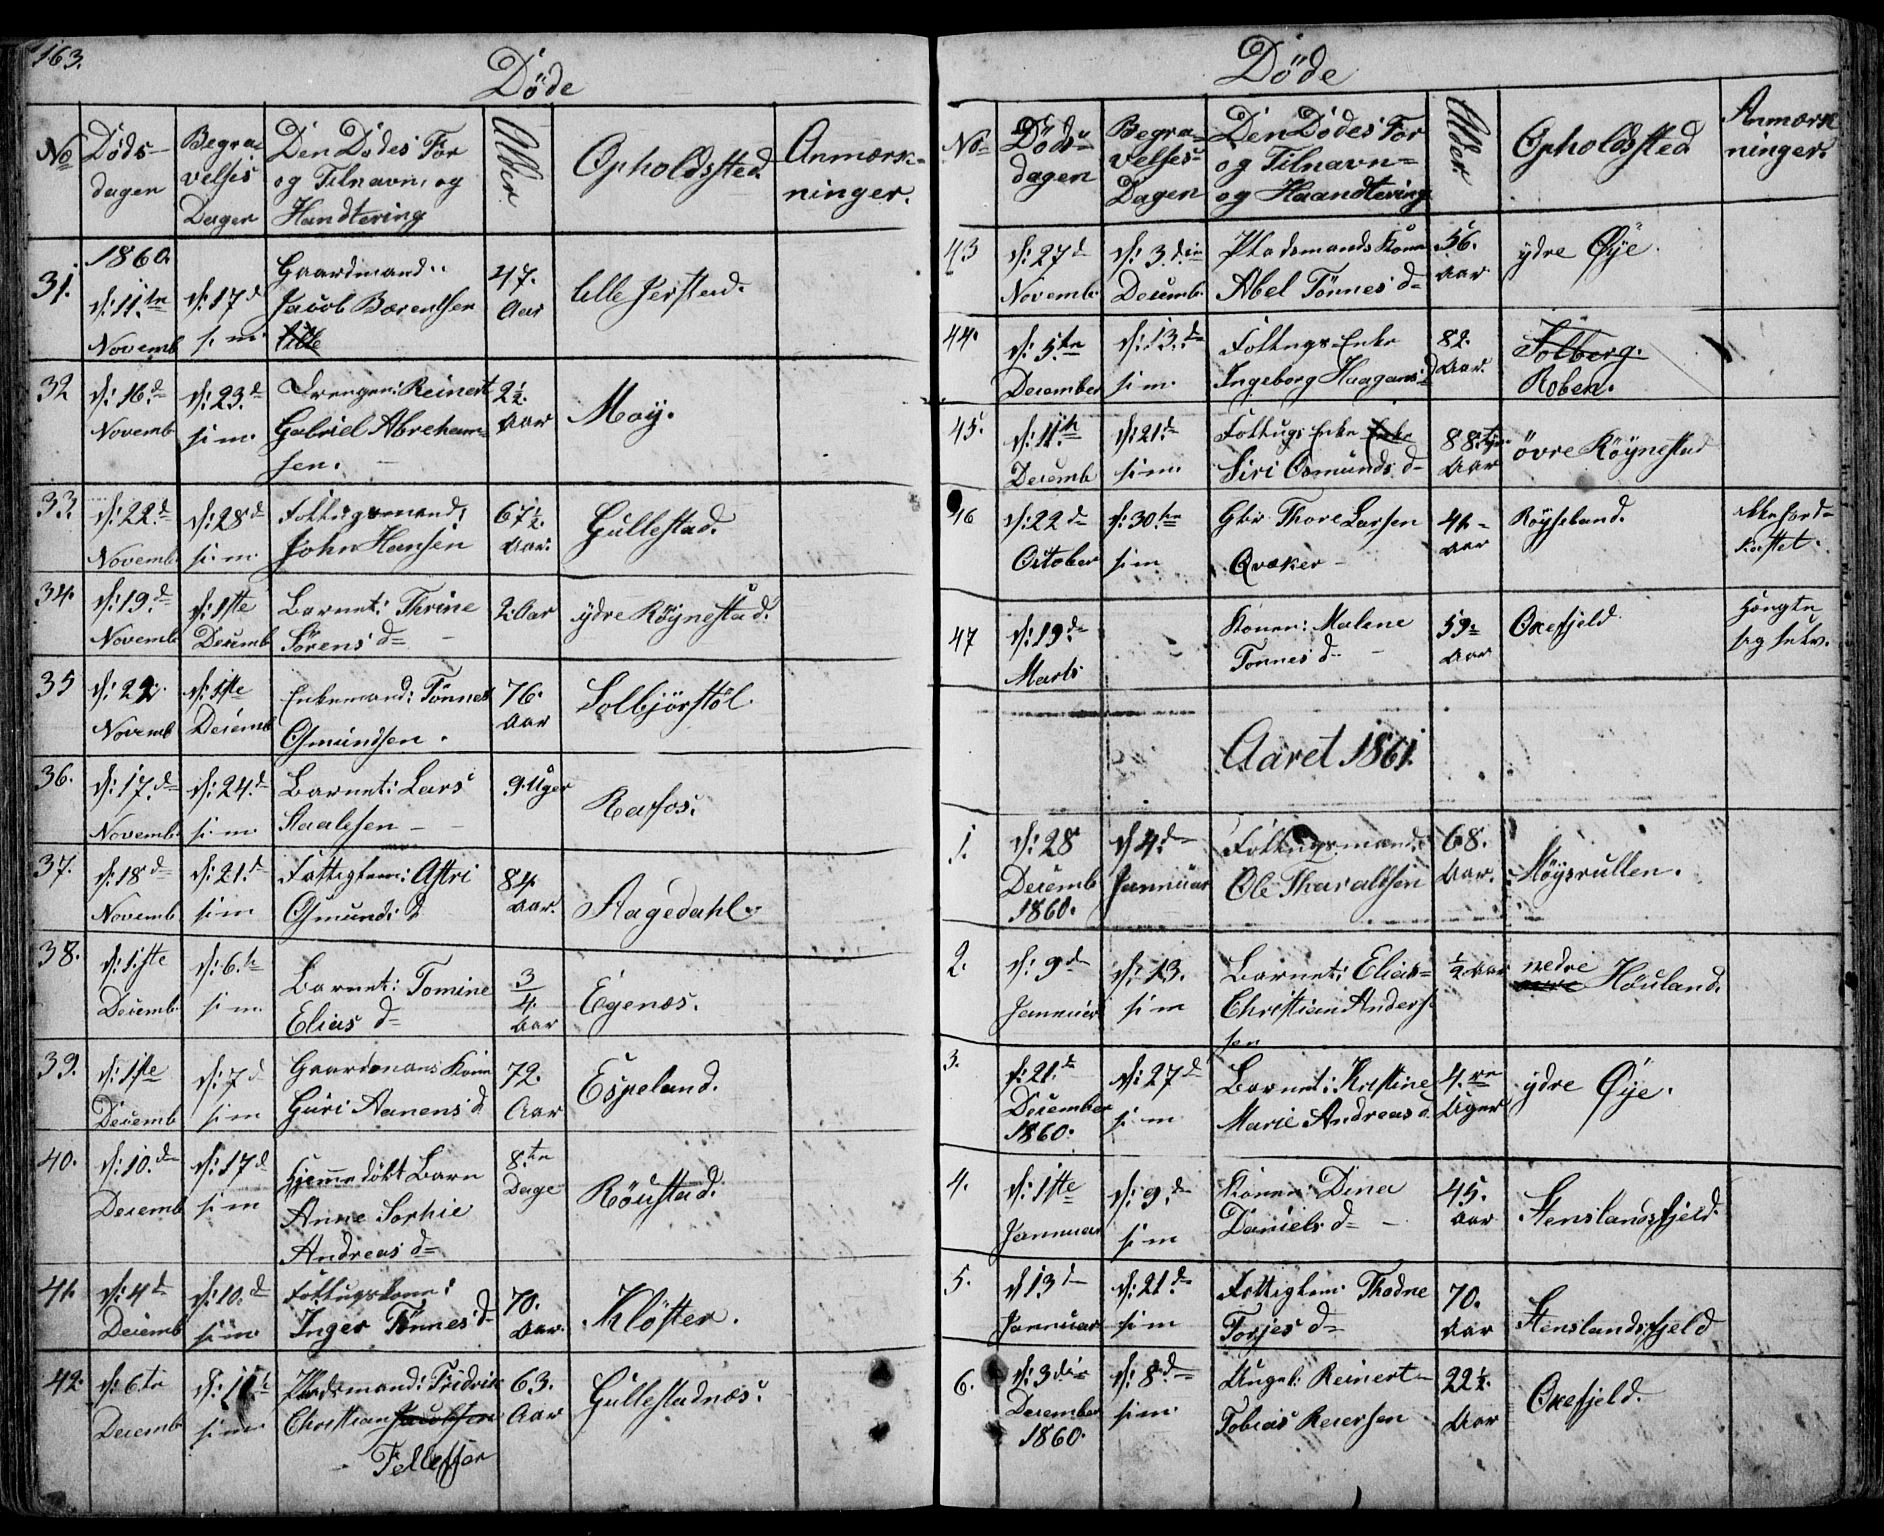 163.
Döde
No
Döds-
dagen
Begra-
velses
Dagen
Den Dödes For
og Tilnavn, og
Handtering
Alder
Opholdssted.
Anmærk-
ninger.
31.
1860.
d: 11.te
Novemb
d: 17d
s. m.
Gaardmand
Jacob Berentsen
47.
Aar
lille Jerstad.
32
d: 16.d
Novemb
d: 23.d
s. m.
Drengen: Reinert
Gabriel Abreham-
sen.
2½.
Aar
Moy.
33.
d: 22.d
Novemb
d: 28d
s. m.
Fattigmand,
John Hansen
67½.
Aar.
Gullestad.
34.
d: 19.d
Novemb
d: 1ste
Decemb
Barnet: Thrine
Sörens d
2. Aar
ydre Röynestad.
35
d: 22.
Novemb
d: 1ste
Decemb
Enkemand: Tönnes
Osmundsen.
76.
Aar
Solbjörstöl.
36.
d: 17.d
Novemb.
d: 24.d
s. m.
Barnet: Lars
Staalesen
9. Uger
Rafos.
37.
d: 18d
Novemb
d: 21.d
s. m
Fattiglem: Astri
Osmunds d
84
Aar.
Aagedahl.
38.
d: 1ste
Decemb.
d: 6.te
s. m.
Barnet: Tomine
Elias d
3/4
Aar
Egenæs.
39.
d: 1ste
Decemb
d: 7d
s. m
Gaardmans Kone
Guri Aanens d
72.
Aar
Espeland.
40.
d: 10.d
Decemb
d: 17d
s. m
hjemmedöbt Barn
Anne Sophie
Andreas d
8.te
Dage
Röustad.
41.
d: 4d
Decemb
d: 10.d
s. m.
Fattigskone:
Inger Tönnes d
70.
Aar
Klöster.
42.
d: 6te
Decemb
s. m
Pladsmand: Fridrik
Christian Jacobsen
Fellesen
63.
Aar
Gullestadnæs.
Döde
No
Döds-
dagen
Begra-
velses-
Dagen
Den Dödes For
og Tilnavn
og Haandtering
Alder.
Opholdssted
Anmærk
ninger.
43
d: 27d
Novemb.
d: 3die
Decemb.
Pladsmands Kone
Abel Tönnes d
56.
Aar
ydre Øye.
44.
d: 5te
December
d: 13.d
s. m.
Fattigs Enke
Ingeborg Haagans d
82.
Aar.
Solberg.
Roben.
45.
d: 11te
Decemb
d: 21.d
s. m.
Fattigs Enke Enke
Siri Osmunds d
88
Aar
övre Röynestad
46
d: 22d
October
d: 30te
s. m
Gbr Thore Larsen
Qvæker
41
Aar
Röyseland.
ikke jord-
kastet.
47
d: 19.d
Marts
Konen: Malene
Tonnes d
59
Aar
Oxefjeld
hængte
sig selv.
Aaret 1861.
1.
d: 28
Decemb
1860.
d 4.d
Januar
Fattigsmand:
Ole Tharaldsen
68.
Aar.
Höysrullen.
2.
d: 9d
Januar
d: 13.
s. m
Barnet: Elias
Christian Anders-
sen
½ Aar
nedre
Höuland.
3.
d: 21.d
December
1860.
d: 27d
s. m
Barnet: Kristine
Marie Andreas d.
4.re
Uger
ydre Øye.
4.
d: 1ste
Januar
d: 9.d
s. m
Konen: Dina
Daniels d
45.
Aar
Stenslandsfjeld.
5.
d 13d
Januar
d: 21.d
s. m
Fattiglem: Thodne
Torjes d
70.
Aar
Stenslandsfjeld
6.
d: 3die
December
1860.
d: 8d
s. m.
Ungk: Reinert
Tobias Reiersen
22½.
Aar
Oxefjeld.